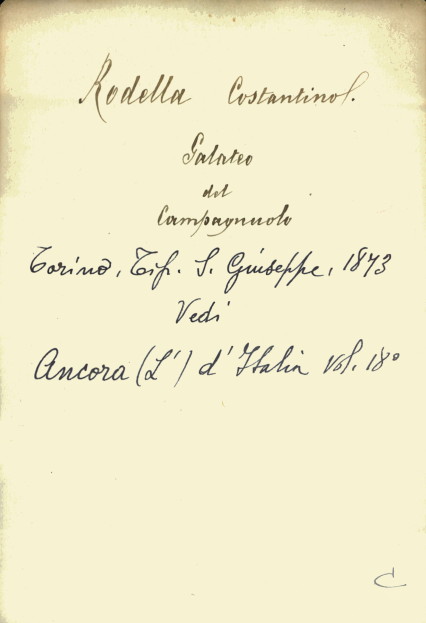 Rodella Costantino.
Galateo
del
Campagnuolo
Torino, Tip. S. Giuseppe, 1873
Vedi
Ancora (L') d'Italia vol. 18°
C